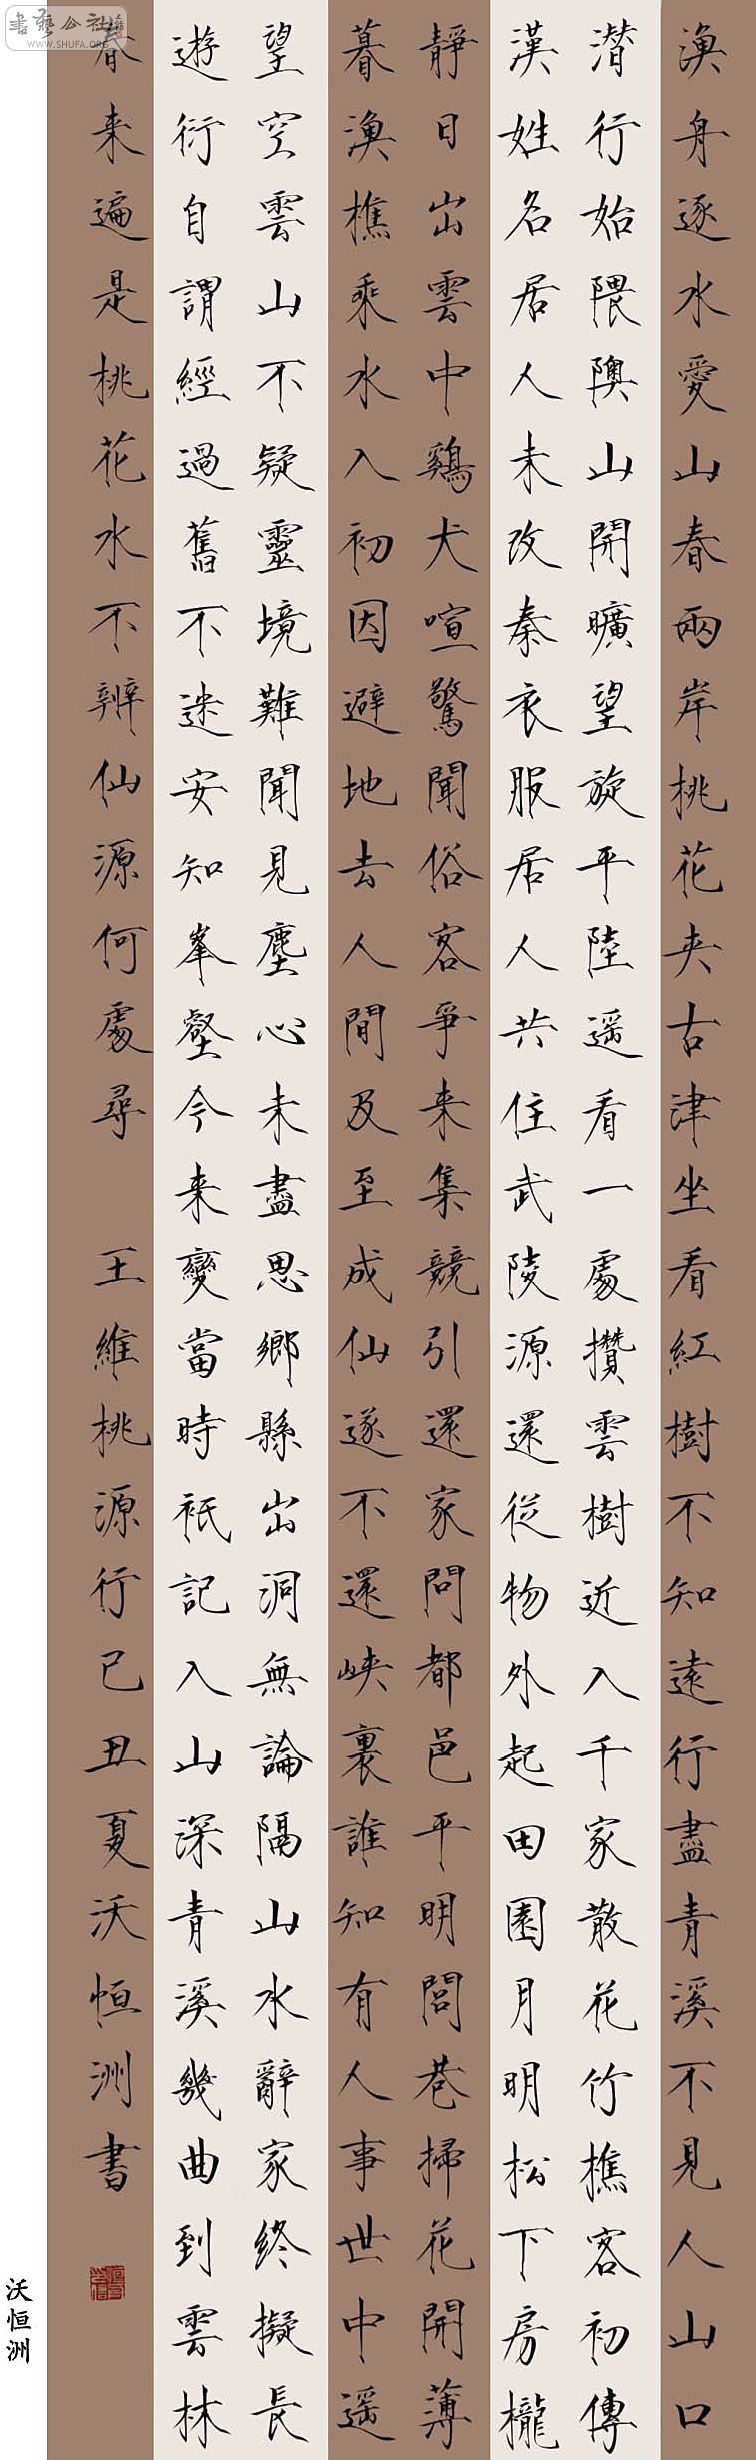 漁舟逐水愛山春兩岸桃花夾古津坐看紅樹不知遠行盡青溪不見人山口
潛行始隈隩山開曠望旋平陸遥看一處攢雲樹近入千家散花竹樵客初傳
漢姓名居人未改秦衣服居人共住武陵源還從物外起田園月明松下房櫳
靜日出雲中鷄犬喧驚聞俗客爭来集競引還家問都邑平明閭巷掃花開薄
暮漁樵乘水入初因避地去人間及至成仙遂不還峽裏誰知有人事世中遥
望空雲山不疑靈境難聞見塵心未盡思鄉縣出洞無論隔山水辭家終擬長
遊衍自謂經過舊不迷安知峯壑今来變當時衹記入山深青溪幾曲到雲林
春来遍是桃花水不辨仙源何處尋 王維桃源行己丑夏沃恒洲書
沃恒洲
書藝公社
WWW.SHUFA.ORG